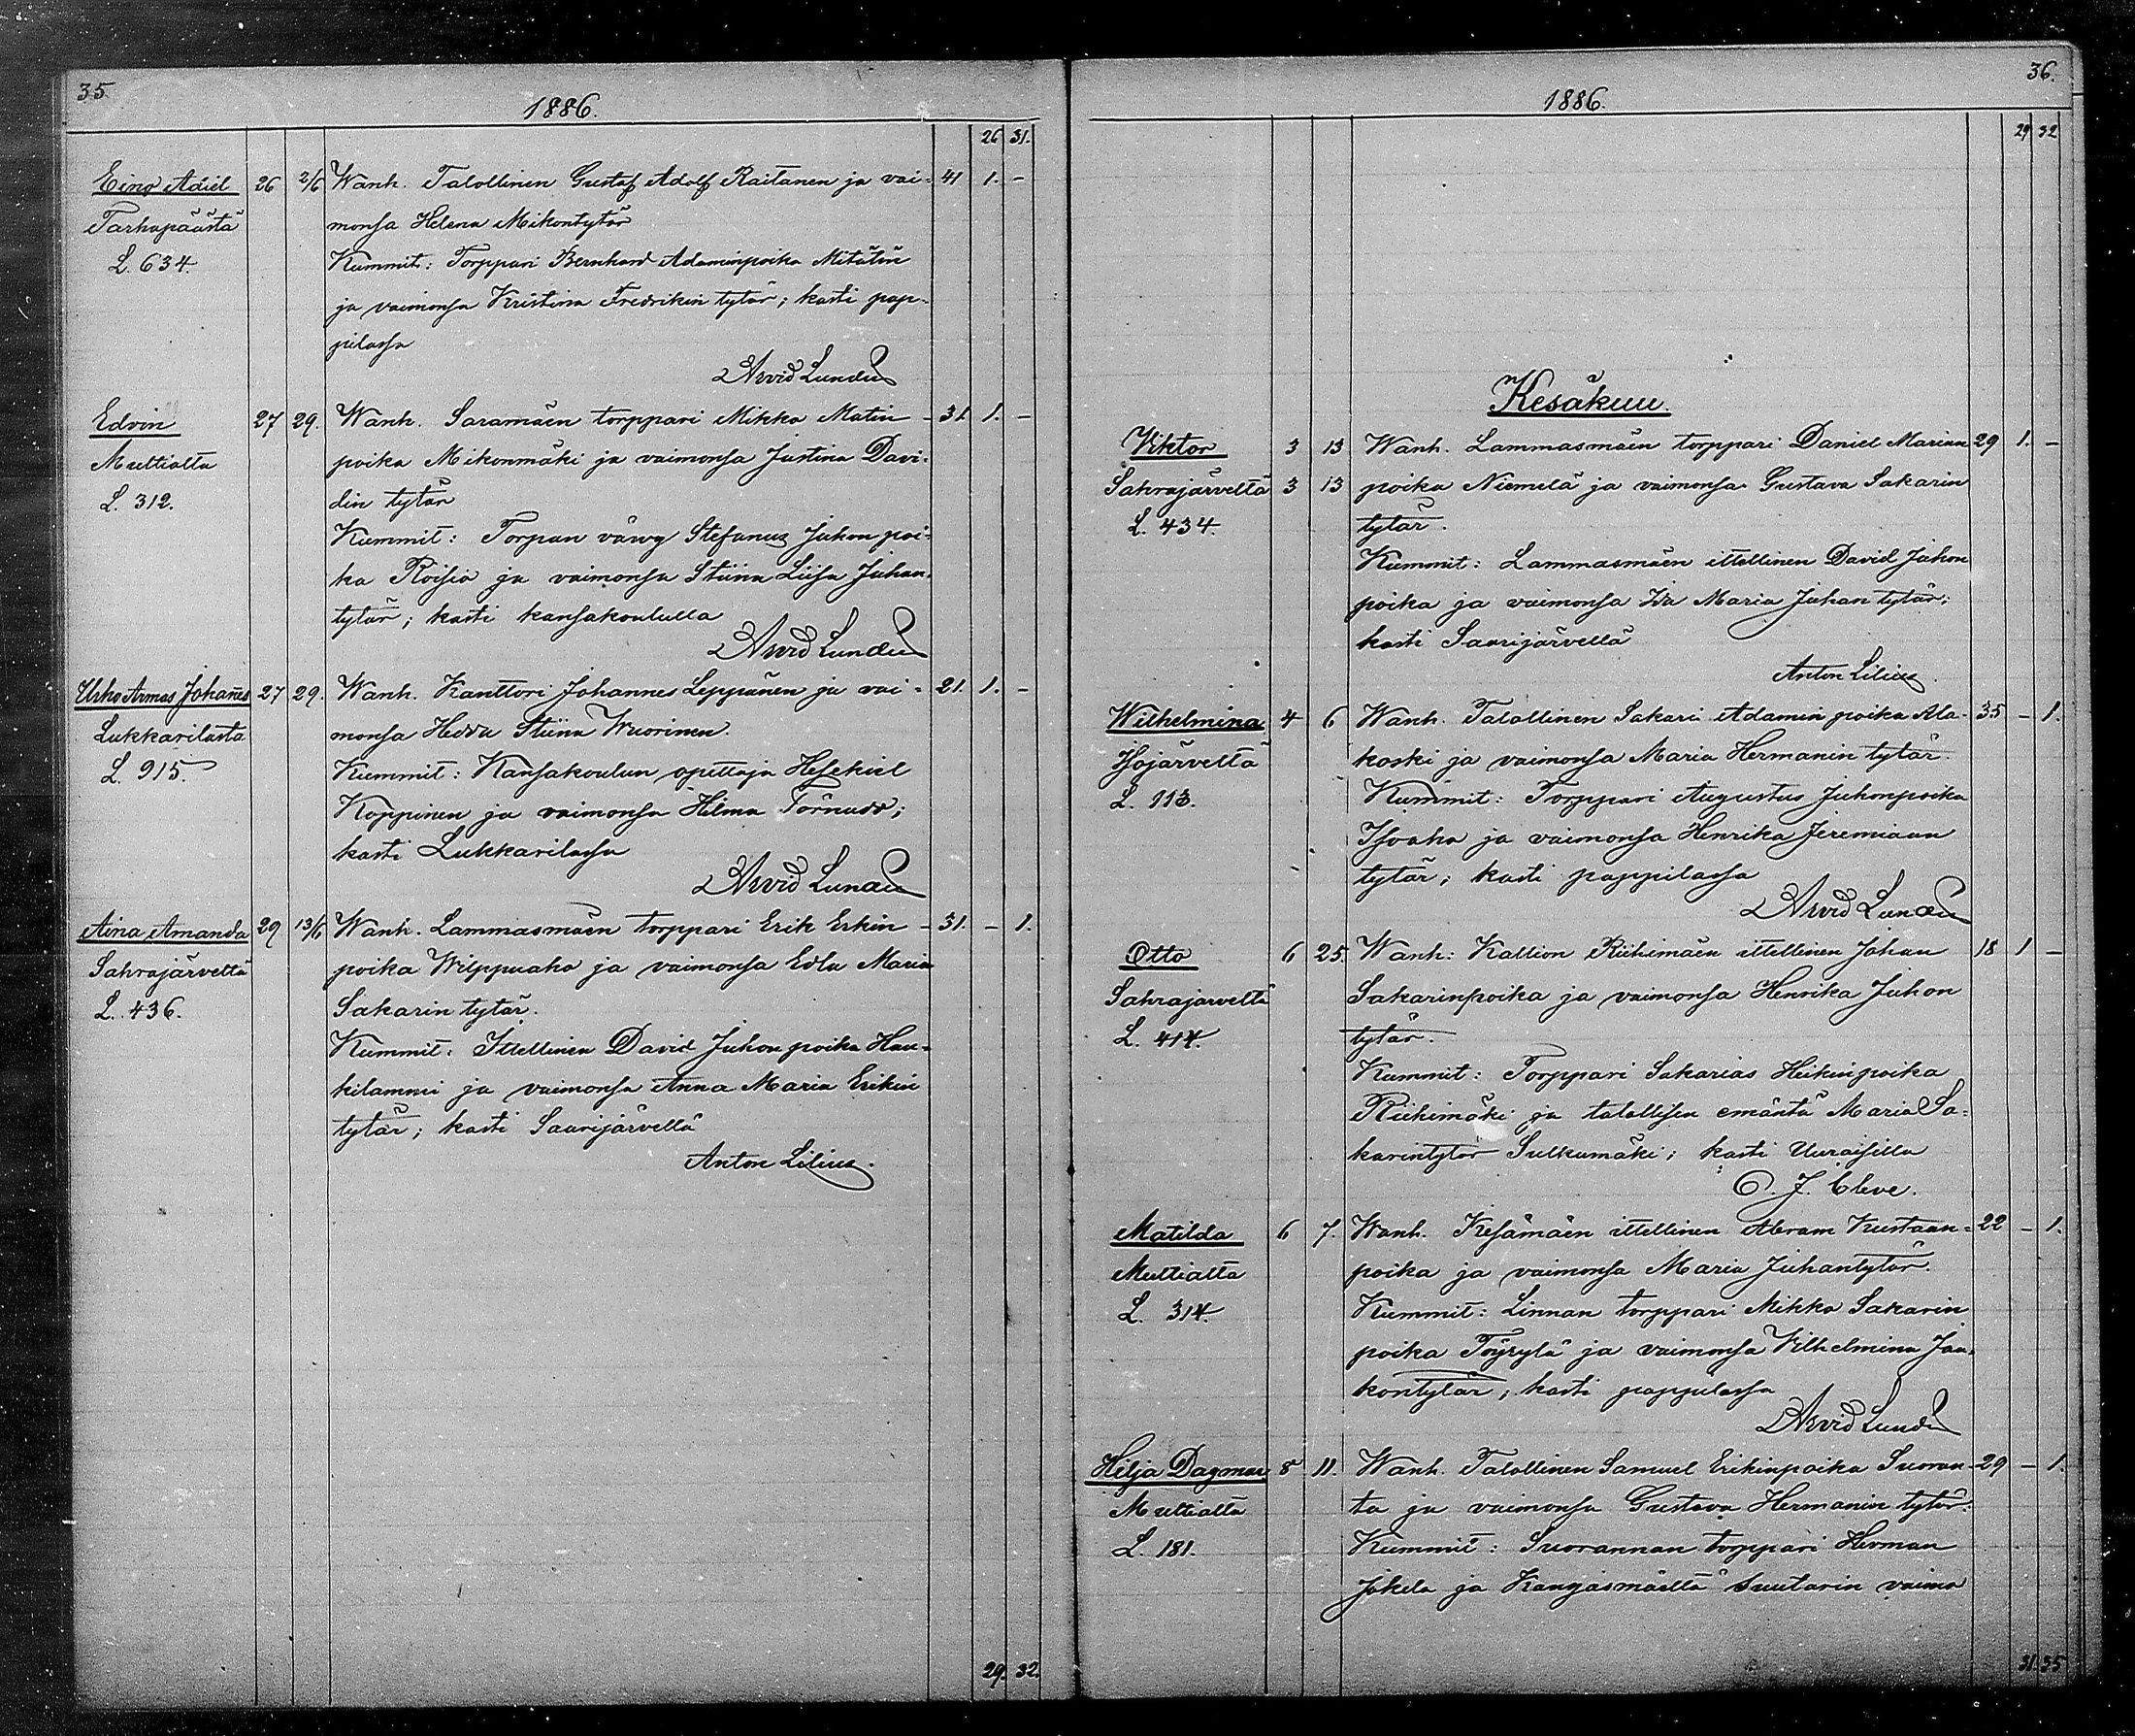 35.
1886.
26 31.
Eino Adiel 26 2/6 Wanh. Talollinen Gustaf Adolf Raitanen ja vai- 41 1. -
Tarhapäästä monsa Helena Mikontytär
L. 634. Kummit: Torppari Bernhard Adaminpoika Mitätön
ja vaimonsa Kristina Fredrikin tytär; kasti pap-
pilassa
Arvid Lundén
Edvin 27 29. Wanh. Saramäen torppari Mikko Matin - 31. 1. -
Multialta poika Mikonmäki ja vaimonsa Justina Davi-
L. 312. din tytär
Kummit: Torpan vävy Stefanus Juhon poi-
ka Roisio ja vaimonsa Stiina Liisa Juhan
tytär; kasti kansakoululla
Arvid Lundén
Urho Armas Johannes 27 29. Wanh. Kanttori Johannes Leppänen ja vai- 21. 1. -
Lukkarilasta monsa Hedda Stiina Wuorinen.
L. 915. Kummit: Kansakoulun opettaja Hesekiel
Koppinen ja vaimonsa Hilma Törnudd;
kasti Lukkarilassa
Arvid Lundén
Aina Amanda 29 13/6 Wanh. Lammasmäen torppari Erik Erkin - 31. - 1.
Sahrajärveltä poika Wilppuaho ja vaimonsa Edla Maria
L. 436. Sakarin tytär.
Kummit: Itellinen David Juhon poika Hau-
kilammi ja vaimonsa Anna Maria Erikin
tytär; kasti Saarijärvellä
Anton Lilius.
29. 32.
36.
1886.
29 32
Kesäkuu.
Viktor 3 13 Wanh. Lammasmäen torppari Daniel Marian 29 1. -
Sahrajärveltä 3 13 poika Niemelä ja vaimonsa Gustava Sakarin
L. 434. tytär.
Kummit: Lammasmäen itellinen David Juhon
poika ja vaimonsa Ida Maria Juhan tytär;
kasti Saarijärvellä
Anton Lilius.
Wilhelmina 4 6 Wanh. Talollinen Sakari Adamin poika Ala- 35 - 1.
Isojärveltä koski ja vaimonsa Maria Hermanin tytär.
L. 113. Kummit: Torppari Augustus Juhonpoika
Isoaho ja vaimonsa Henrika Jeremiaan
tytär; kasti pappilassa
Arvid Lundén
Otto 6 25. Wanh: Kallion Riihimäen itellinen Johan 18 1 -
Sahrajärveltä Sakarinpoika ja vaimonsa Henrika Juhon
L. 414. tytär.
Kummit: Torppari Sakarias Heikinpoika
Riihimäki ja talollisen emäntä Maria Sa-
karintytär Sulkumäki; kasti Uuraisilla
C. J. Cleve.
Matilda 6 7. Wanh. Kesämäen itellinen Abram Kustaan- 22 - 1.
Multialta poika ja vaimonsa Maria Juhantytär.
L. 314. Kummit: Linnan torppari Mikko Sakarin
poika Töyrylä ja vaimonsa Vilhelmina Jaa-
kontytär; kasti pappilassa
Arvid Lundén
Hilja Dagmar 8 11. Wanh. Talollinen Samuel Erikinpoika Suoran- 29 - 1.
Multialta ta ja vaimonsa Gustava Hermanin tytär.
L. 181. Kummit: Suorannan torppari Herman
Jokela ja Kangasmäeltä Suutarin vaimo
31. 35